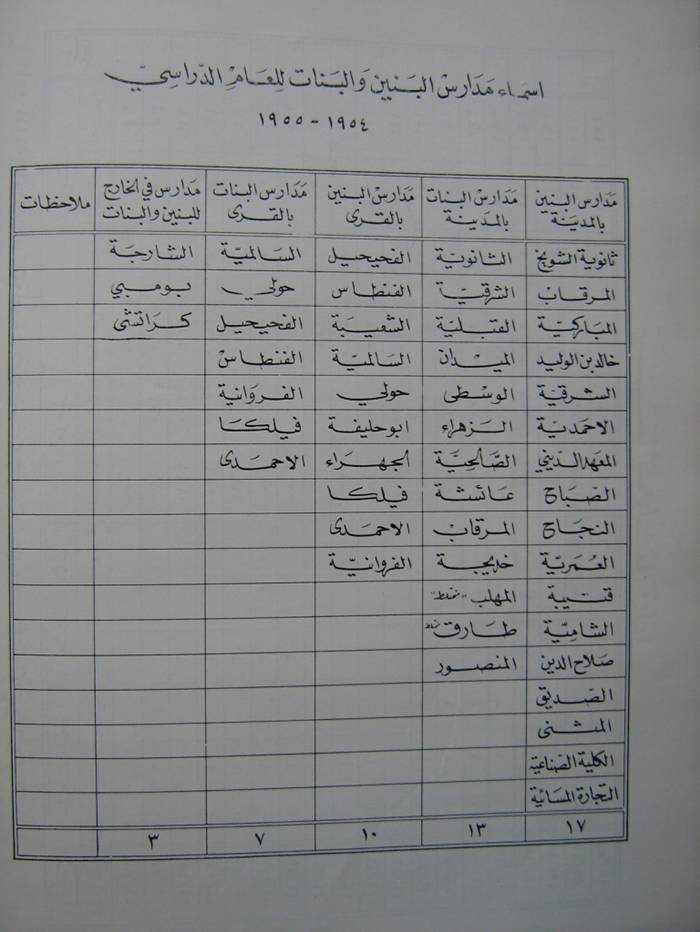 اسماء مدارس البنين والبنات للعام الدراسي
١٩٥٤ - ١٩٥٥
مدارس البنين بالمدينة | مدارس البنات بالمدينة | مدارس البنين بالقرى | مدارس البنات بالقرى | مدارس في الخارج للبنين والبنات | ملاحظات
ثانوية الشويخ | الثانوية | الفحيحيل | السالمية | الشارجة
المرقاب | الشرقية | الفنطاس | حولي | بومبي
المباركية | القبلية | الشعيبة | الفحيحيل | كراتشى
خالد بن الوليد | الميدان | السالمية | الفنطاس
الشرقية | الوسطى | حولي | الفروانية
الاحمدية | الزهراء | ابو حليفة | فيلكا
المعهد الديني | الصالحية | الجهراء | الاحمدى
الصباح | عائشة | فيلكا
النجاح | المرقاب | الاحمدى
العمرية | خديجة | الفروانية
قتيبة | المهلب "مختلط"
الشامية | طارق مختلط
صلاح الدين | المنصور
الصديق
المثنى
الكلية الصناعية
التجارة المسائية
١٧ | ١٣ | ١٠ | ٧ | ٣